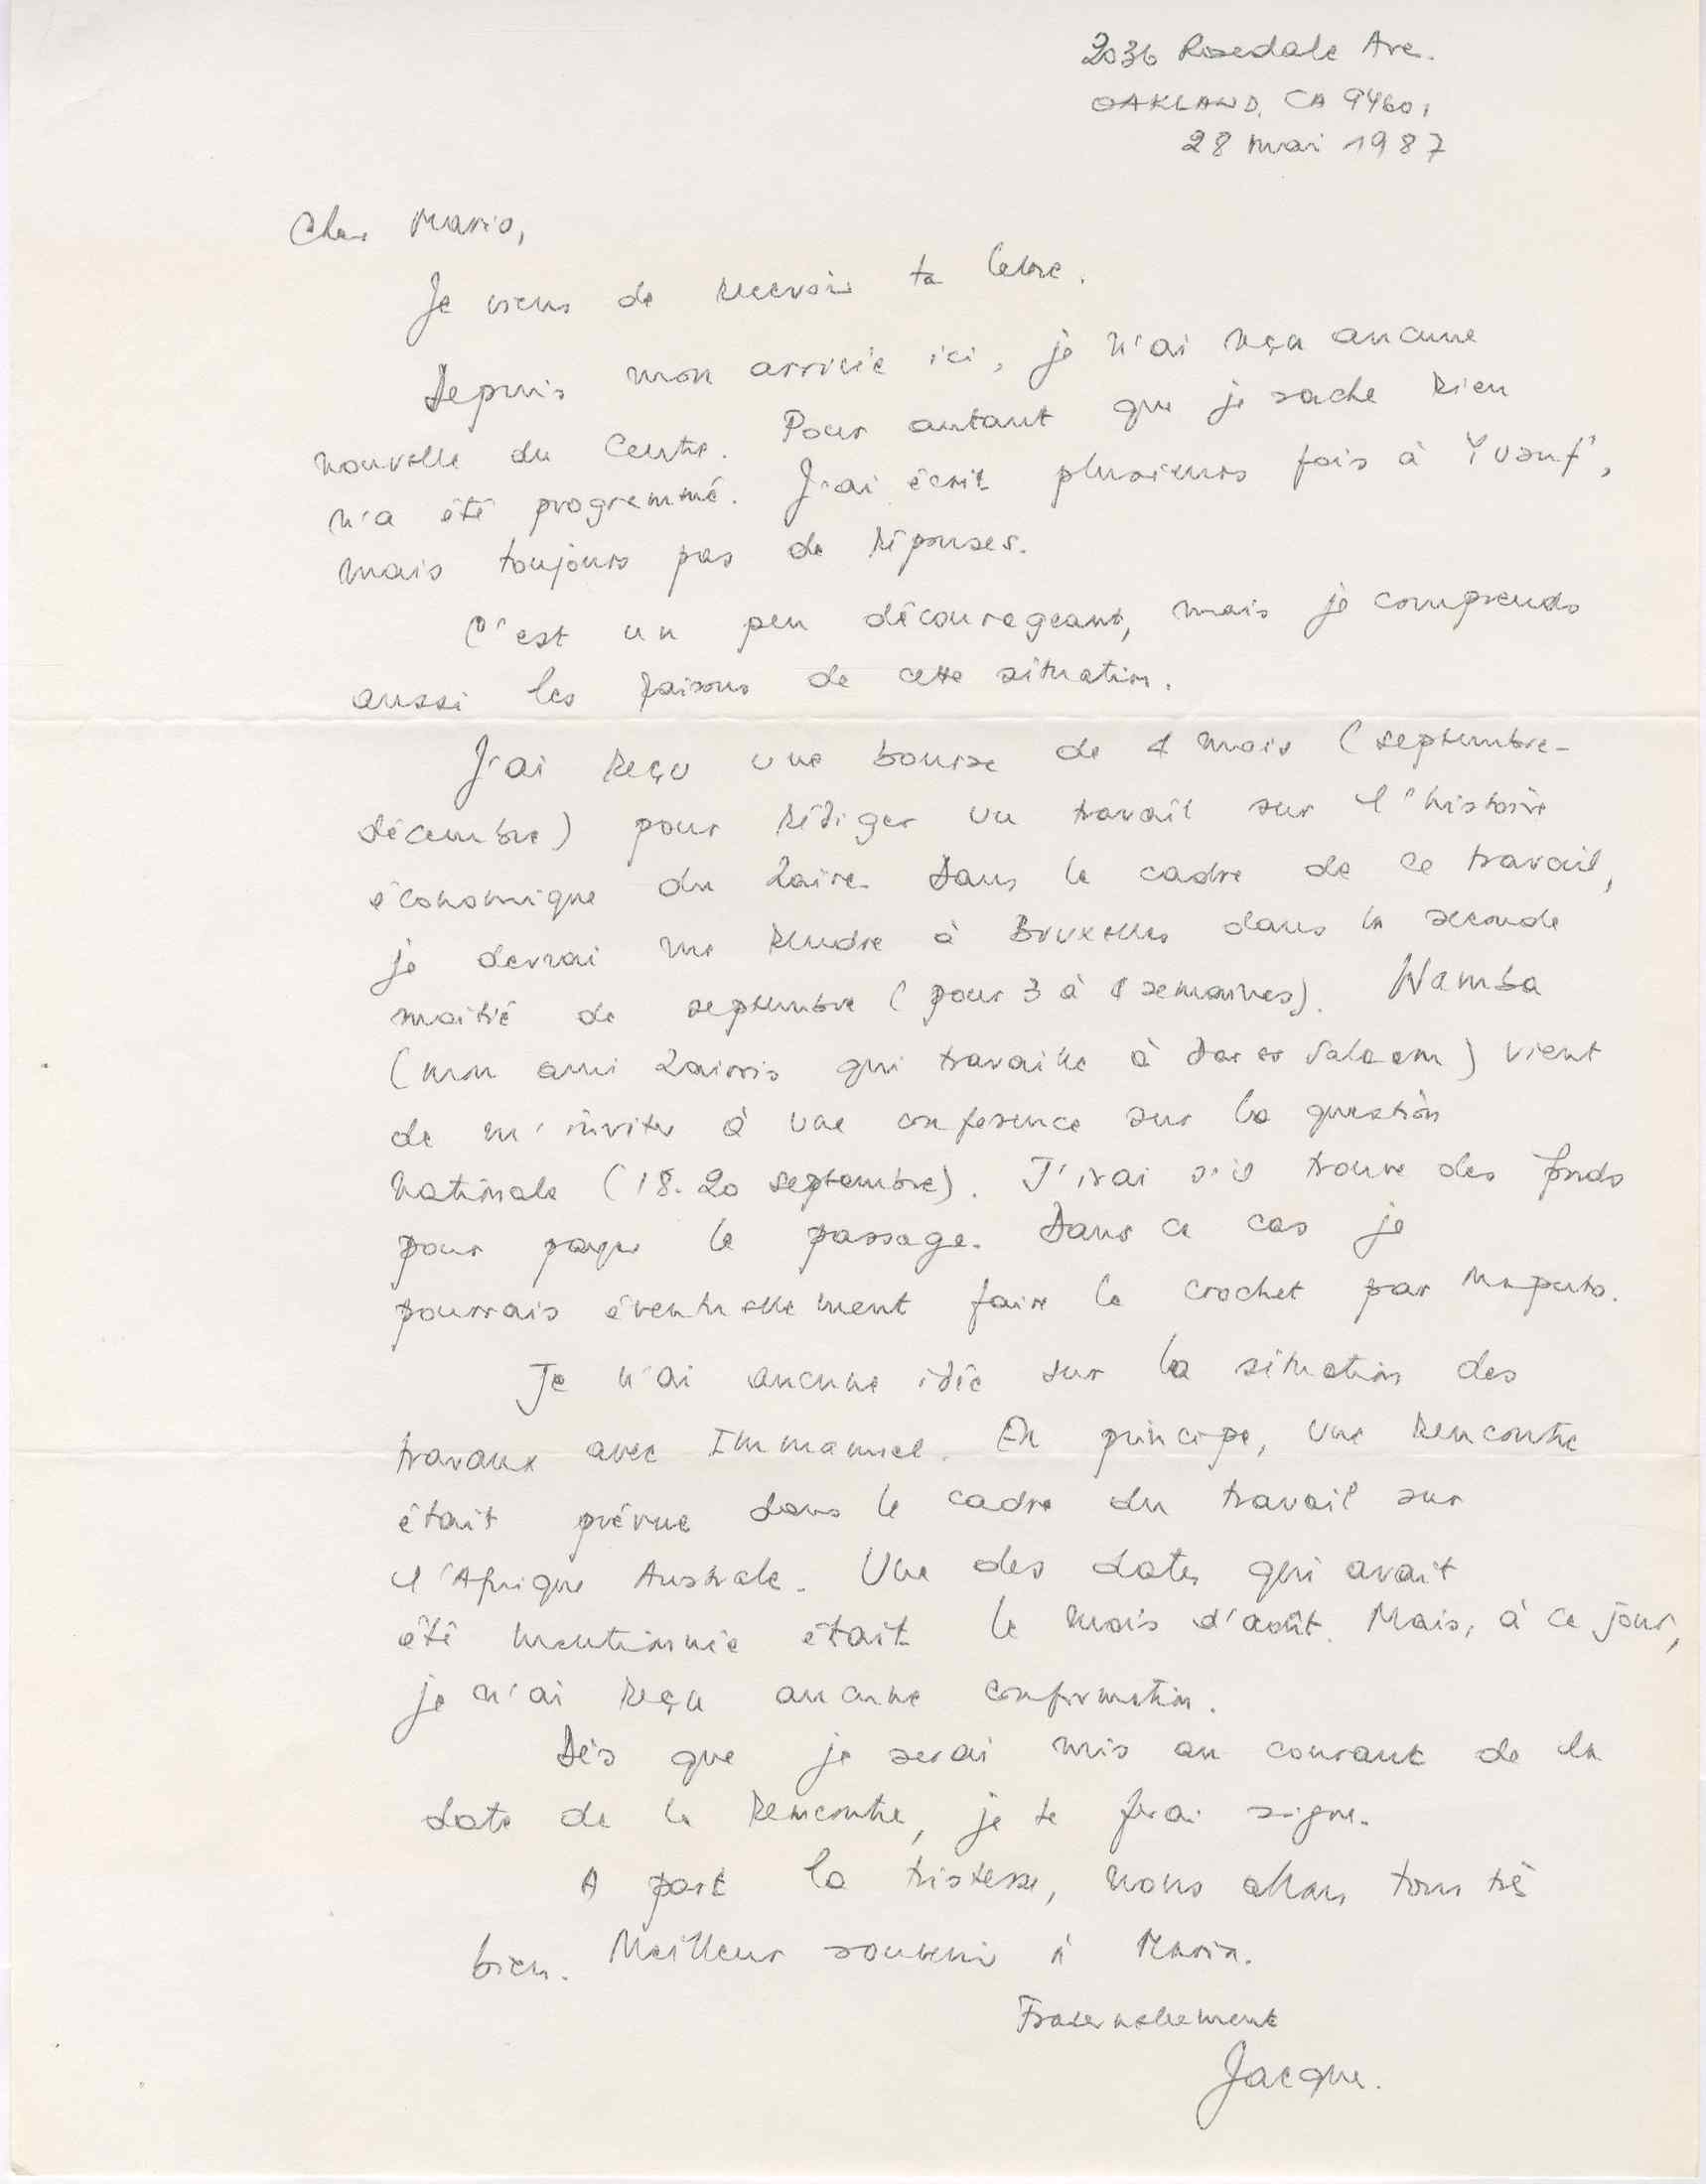 2036 Rosedale Ave.
OAKLAND, CA 94601
28 mai 1987
Cher Mario,
Je viens de recevoir ta lettre.
Depuis mon arrivée ici, je n'ai reçu aucune
nouvelle du Centre. Pour autant que je sache rien
n'a été programmé. J'ai écrit plusieurs fois à Yusuf,
mais toujours pas de réponses.
C'est un peu décourageant, mais je comprends
aussi les raisons de cette situation.
J'ai reçu une bourse de 4 mois (septembre-
décembre) pour rédiger un travail sur l'histoire
économique du Zaire. Dans le cadre de ce travail,
je devrai me rendre à Bruxelles dans la seconde
moitié de septembre (pour 3 à 4 semaines). Wamba
(mon ami Zairois qui travaille à Dar es Salaam) vient
de m'inviter à une conference sur la question
nationale (18-20 septembre). J'irai s'il trouve des fonds
pour payer le passage. Dans ce cas je
pourrais éventuellement faire le crochet par Maputo.
Je n'ai aucune idée sur la situation des
travaux avec Immanuel. En principe, une rencontre
était prévue dans le cadre du travail sur
l'Afrique Australe. Une des dates qui avait
été mentionnée était le mois d'août. Mais, à ce jour,
je n'ai reçu aucune confirmation.
Dès que je serai mis au courant de la
date de la rencontre, je te ferai signe.
A part la tristesse, nous allons tous très
bien. Meilleur souvenir à Maria.
Fraternellement
Jacques.